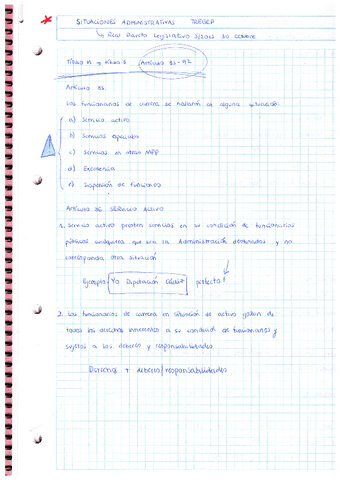 SITUACIONES ADMINISTRATIVAS TREBEP
↳ Real Decreto Legislativo 5/2015 30 octubre
Título VI → Artículo 85-92
Artículo 85.
Los funcionarios de carrera se hallarán en alguna situación:
a) Servicio activo
b) Servicios especiales
c) Servicios en otras AAPP
d) Excedencia
e) Suspensión de funciones
Artículo 86 SERVICIO ACTIVO
1. Servicio activo presten servicios en su condición de funcionarios
públicos cualquiera que sea la Administración destinados y no
corresponda otra situación
Ejemplo: Yo Diputación Cádiz perfecto!
2. Los funcionarios de carrera en situación de activo gozan de
todos los derechos inherentes a su condición de funcionarios y
sujetos a los deberes y responsabilidades.
Derechos + deberes/responsabilidades